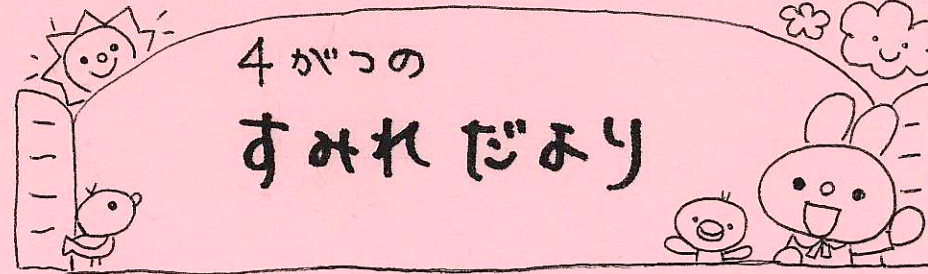 4がつの
すみれ だより